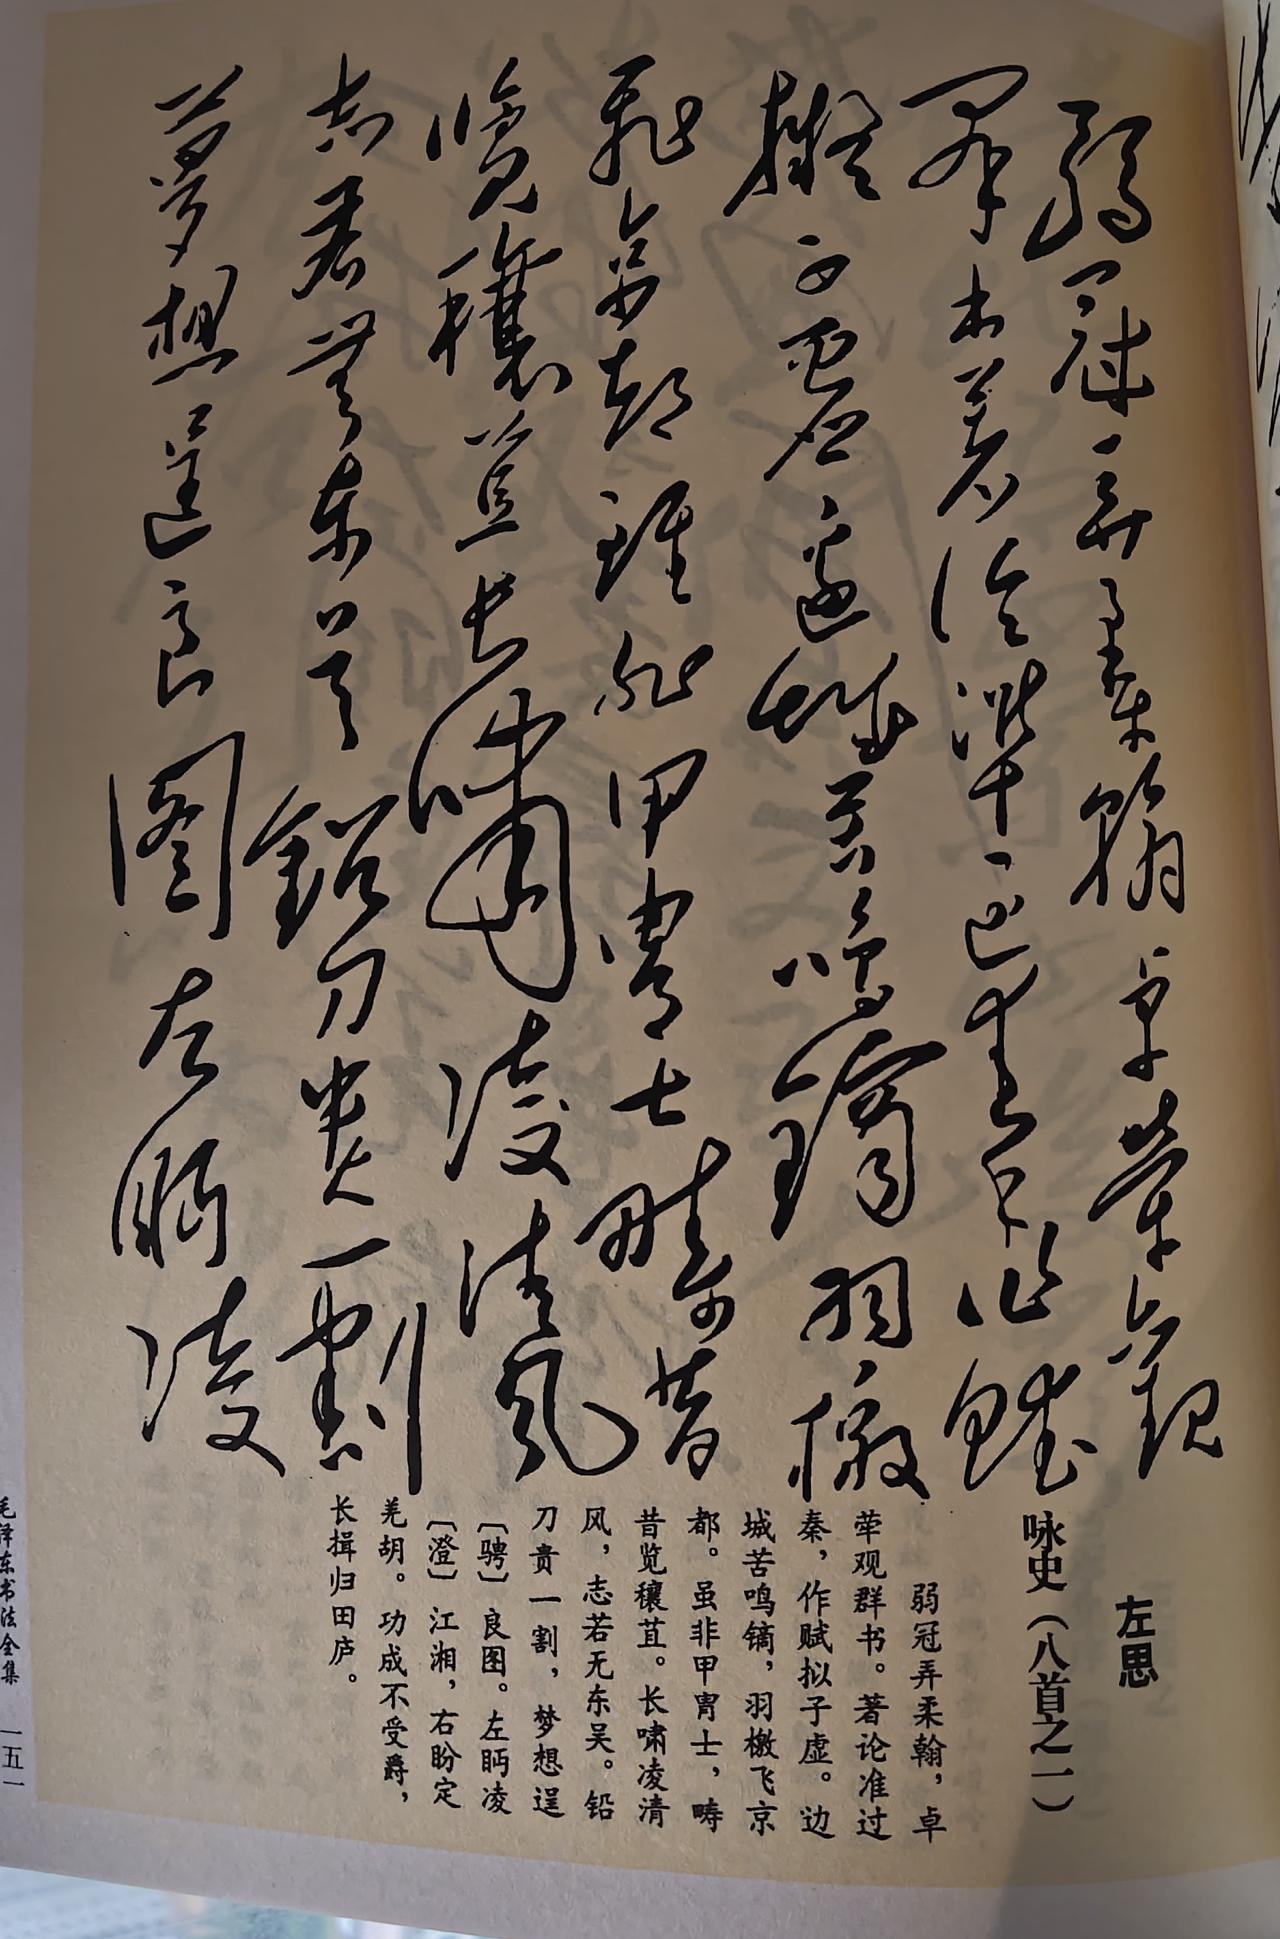 弱冠弄柔翰卓荦観
群书著论準过秦作赋
拟子虚边城苦鸣镝羽檄
飛京都雖非甲胄士疇昔
览穰苴长啸凌清风
志若無东吴铅刀贵一割
梦想逞良图左眄凌
左思
咏史（八首之一）
弱冠弄柔翰，卓
荦观群书。著论准过
秦，作赋拟子虚。边
城苦鸣镝，羽檄飞京
都。虽非甲胄士，畴
昔览穰苴。长啸凌清
风，志若无东吴。铅
刀贵一割，梦想逞
〔骋〕良图。左眄凌
〔澄〕江湘，右盼定
羌胡。功成不受爵，
长揖归田庐。
毛泽东书法全集 一五一